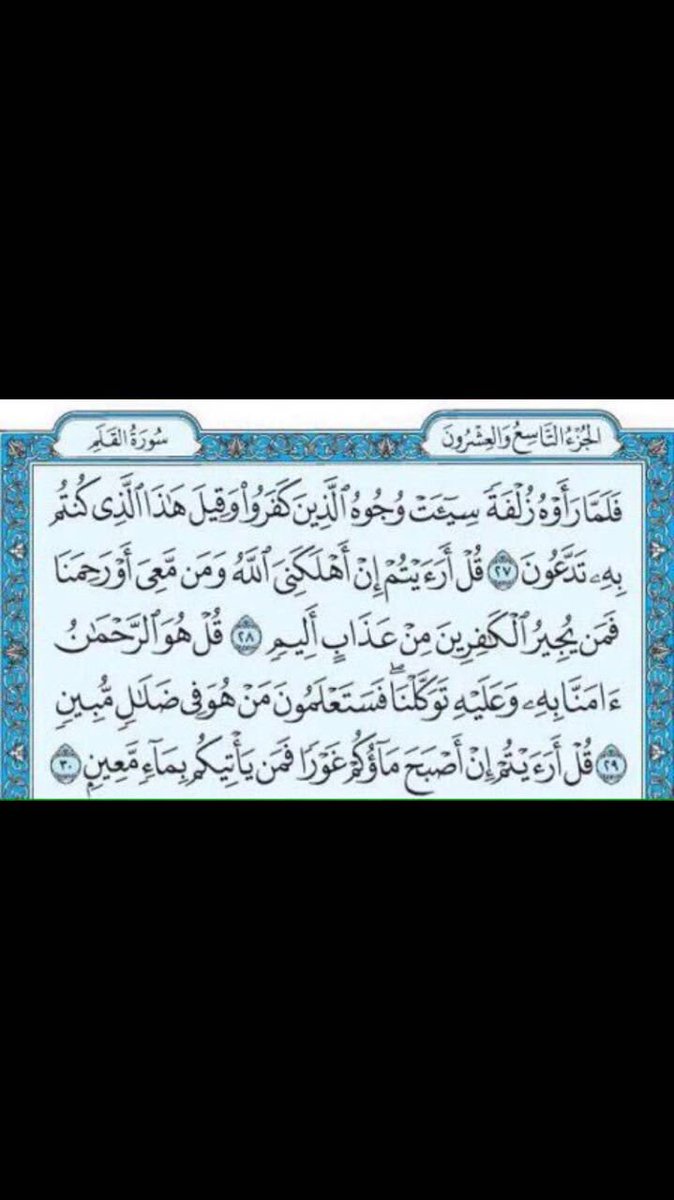 الجُزْءُ التَّاسِعُ وَالعِشْرُونَ
سُورَةُ القَلَمِ
فَلَمَّا رَأَوۡهُ زُلۡفَةٗ سِيٓـَٔتۡ وُجُوهُ ٱلَّذِينَ كَفَرُواْ وَقِيلَ هَٰذَا ٱلَّذِي كُنتُم
بِهِۦ تَدَّعُونَ ٢٧ قُلۡ أَرَءَيۡتُمۡ إِنۡ أَهۡلَكَنِيَ ٱللَّهُ وَمَن مَّعِيَ أَوۡ رَحِمَنَا
فَمَن يُجِيرُ ٱلۡكَٰفِرِينَ مِنۡ عَذَابٍ أَلِيمٖ ٢٨ قُلۡ هُوَ ٱلرَّحۡمَٰنُ
ءَامَنَّا بِهِۦ وَعَلَيۡهِ تَوَكَّلۡنَاۖ فَسَتَعۡلَمُونَ مَنۡ هُوَ فِي ضَلَٰلٖ مُّبِينٖ
٢٩ قُلۡ أَرَءَيۡتُمۡ إِنۡ أَصۡبَحَ مَآؤُكُمۡ غَوۡرٗا فَمَن يَأۡتِيكُم بِمَآءٖ مَّعِينِۭ ٣٠